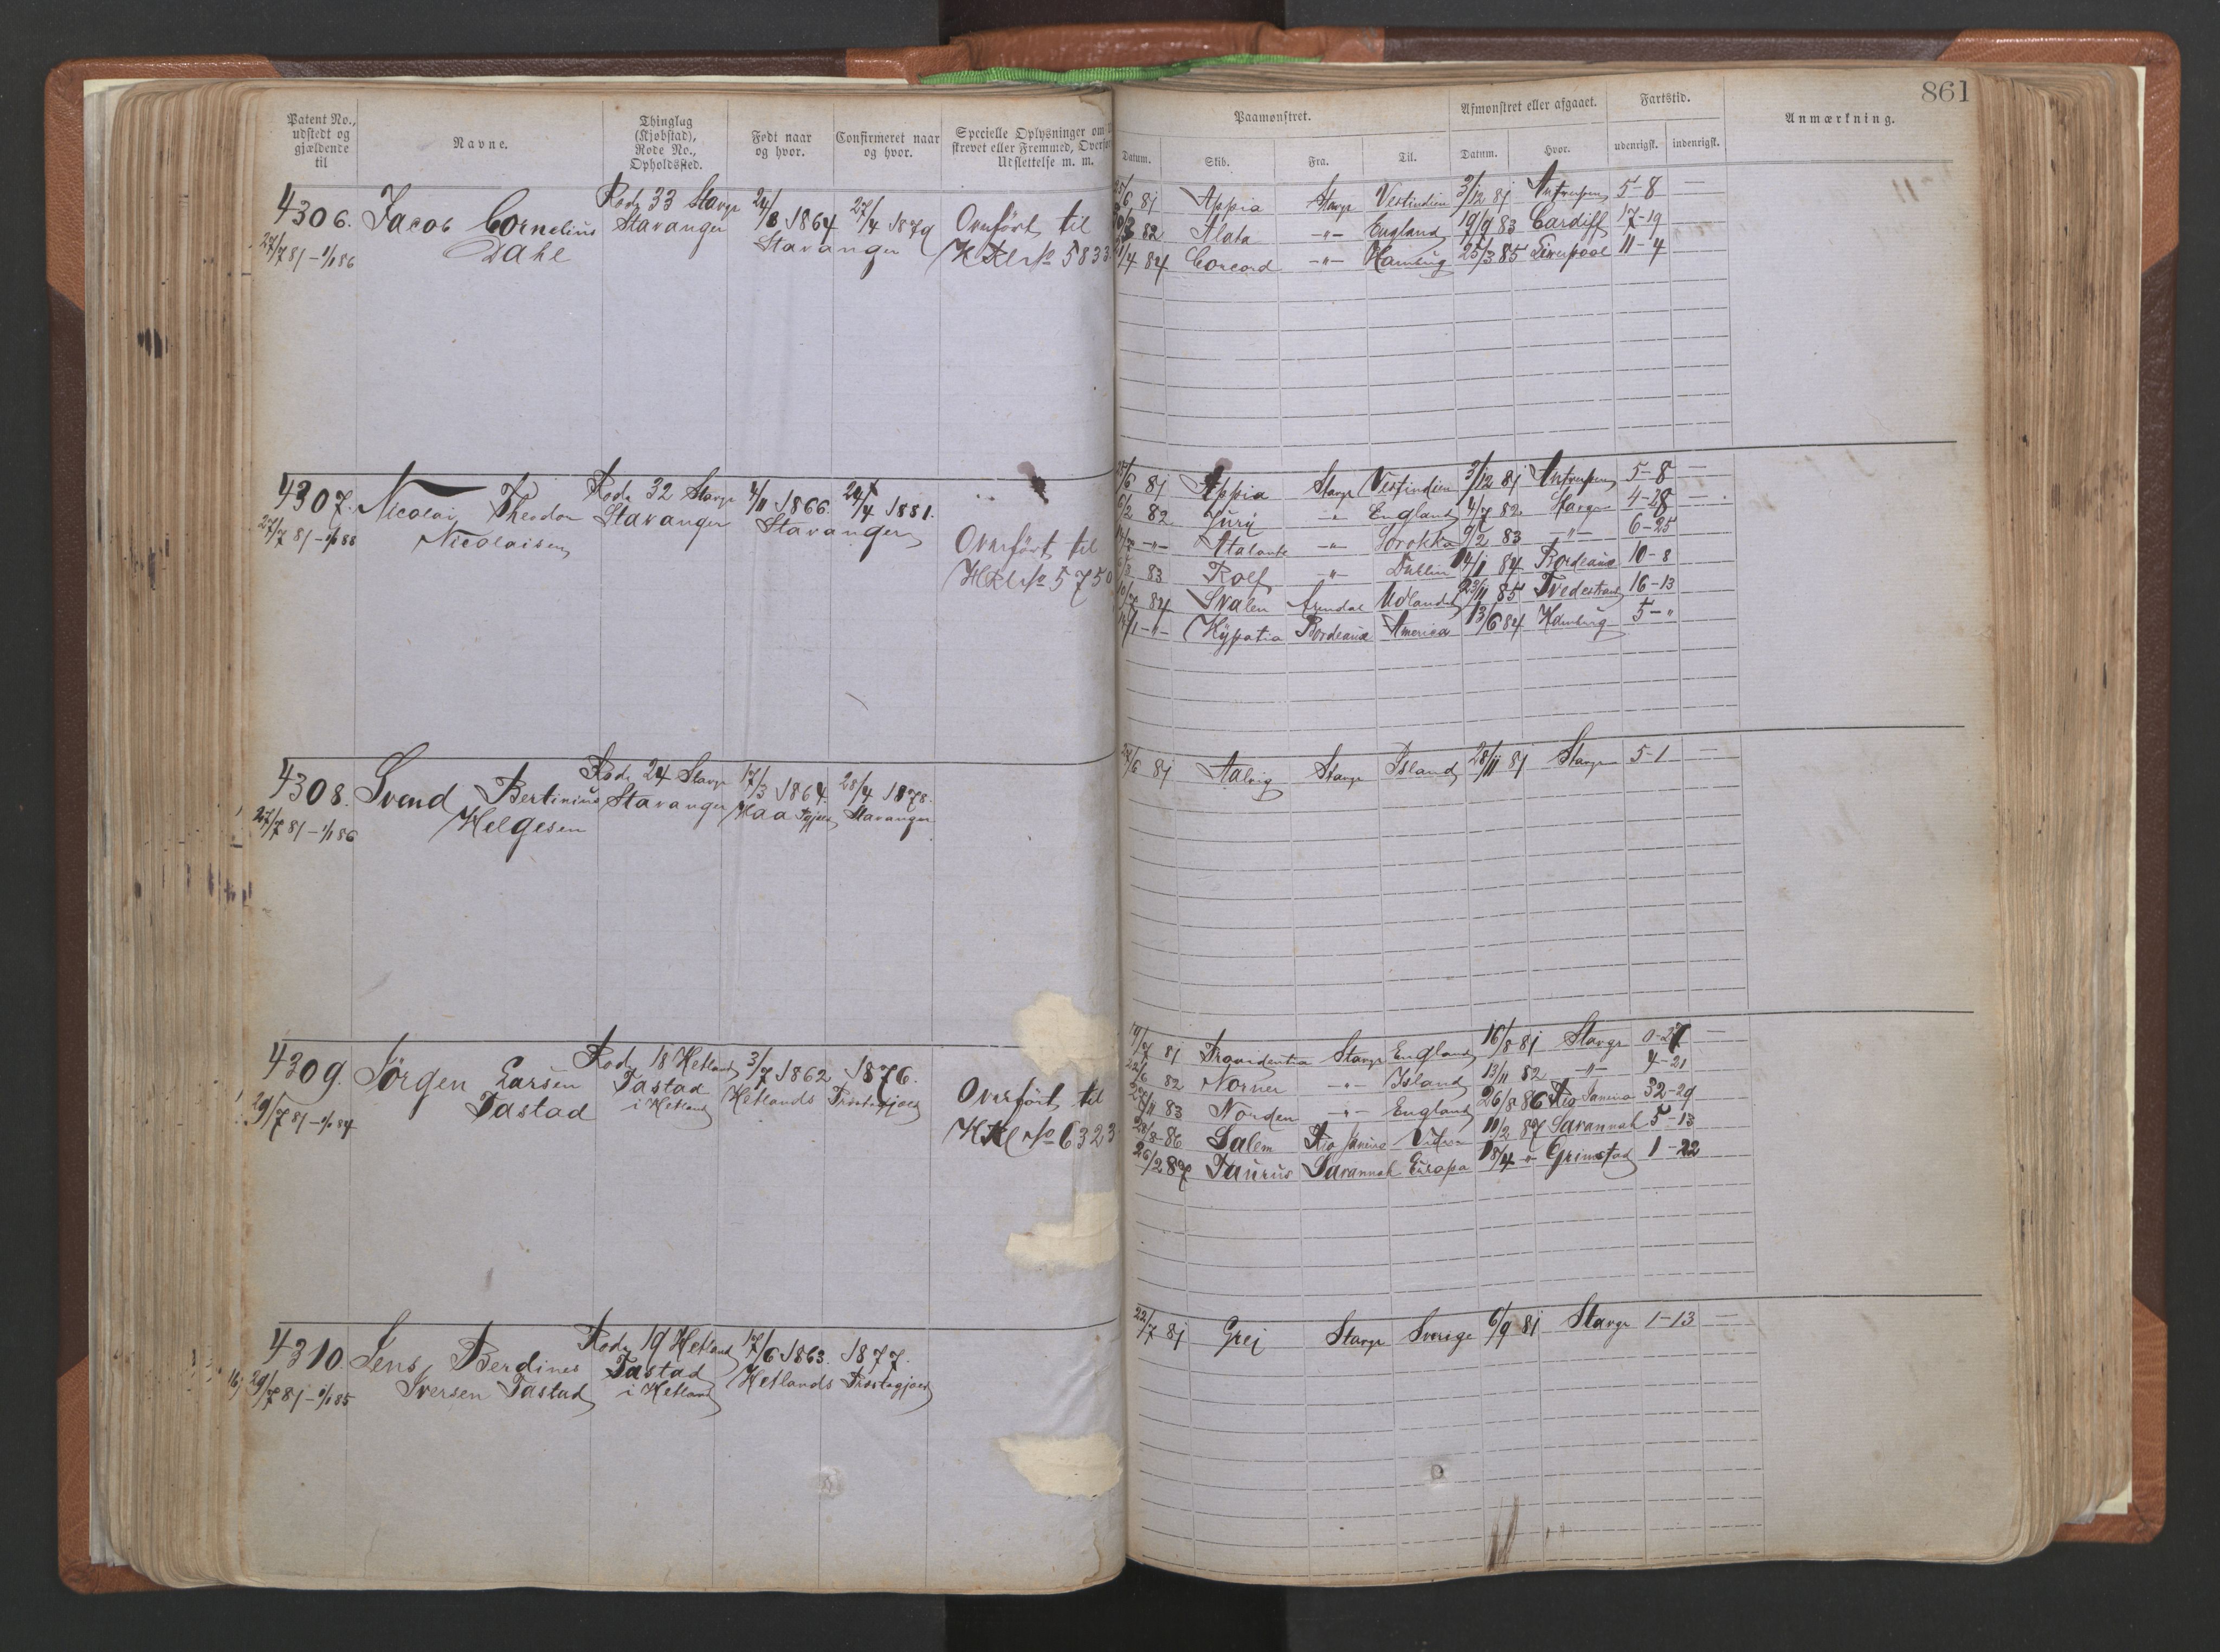 861
Patent No., udstedt og gjældende til
Navne.
Thinglag (Kjøbstad), Rode No., Opholdssted.
Født naar og hvor.
Confirmeret naar og hvor.
Specielle Oplysninger om
strevet eller Fremmed, Overfør
Udslettelse m. m.
Paamønstret.
Afmønstret eller afgaaet.
Fartstid.
Anmærkning.
Datum. Skib. Fra. Til. Datum. Hvor. udenrigsk. indenrigsk.
4306. Jacob Cornelius Rode 33 Stavgr 24/8 1864 27/4 1879 Overført til
27/7 81 – 1/1 86 Dahl Stavanger Stavanger HKl No 5833
/6 81 Appia Stavgr Vestindien 3/12 81 Antverpen 5–8 —
82 Alata –"– England 19/9 83 Cardiff 17–19
/4 84 Concord –"– Hamburg 25/3 85 Liverpool 11–4
4307. Nicolai Theodor Rode 32 Stavgr 4/11 1866. 24/4 1881.
27/7 81 – 1/1 88 Nicolaisen Stavanger Stavanger
Overført til
HKl No 5750
/6 81 Appia Stavgr Vestindien 3/12 81 Antverpen 5–8 —
6/2 82 Juri –"– England 4/7 82 Stavgr 4–28 —
–"– Atalante –"– Sorokka 9/2 83 –"– 6–25
83 Rolf –"– Dublin 14/1 84 Bordeaux 10–8
84 Svalen Arendal Udlandet 23/11 85 Tvedestrand 16–13
–"– Hypatia Bordeaux America 13/6 84 Hamburg 5–"
4308. Svend Bertinius Rode 24 Stavgr 17/3 1864. 28/4 1878.
27/7 81 – 1/1 86 Helgesen Stavanger Haa Stavanger
/6 81 Aalvig Stavgr Island 28/11 81 Stavgr 5–1 —
4309. Jörgen Larsen Rode 18 Hetland 3/7 1862 1876.
29/7 81 – 1/1 84 Tastad Tastad i Hetland Hetlands Præstegjæld
Overført til
HKl No 6323
19/7 81 Providentia Stavgr England 16/8 81 Stavgr 0–27 —
22/6 82 Norner –"– Island 13/11 82 –"– 4–21
/11 83 Norden –"– England 26/8 86 Rio Janeiro 32–29
28/8–86 Salem Rio Janeiro 11/2 87 Savannah 5–13
26/2 87 Taurus Savannah Europa 18/4 " Grimstad 1–22
4310. Jens Berdines Rode 19 Hetland 17/6 1863. 1877.
29/7 81 – 1/1 85 Iversen Tastad Tastad i Hetland Hetlands Præstegjæld
22/7 81 Grej Stavgr Sverige 6/9 81 Stavgr 1–13 —